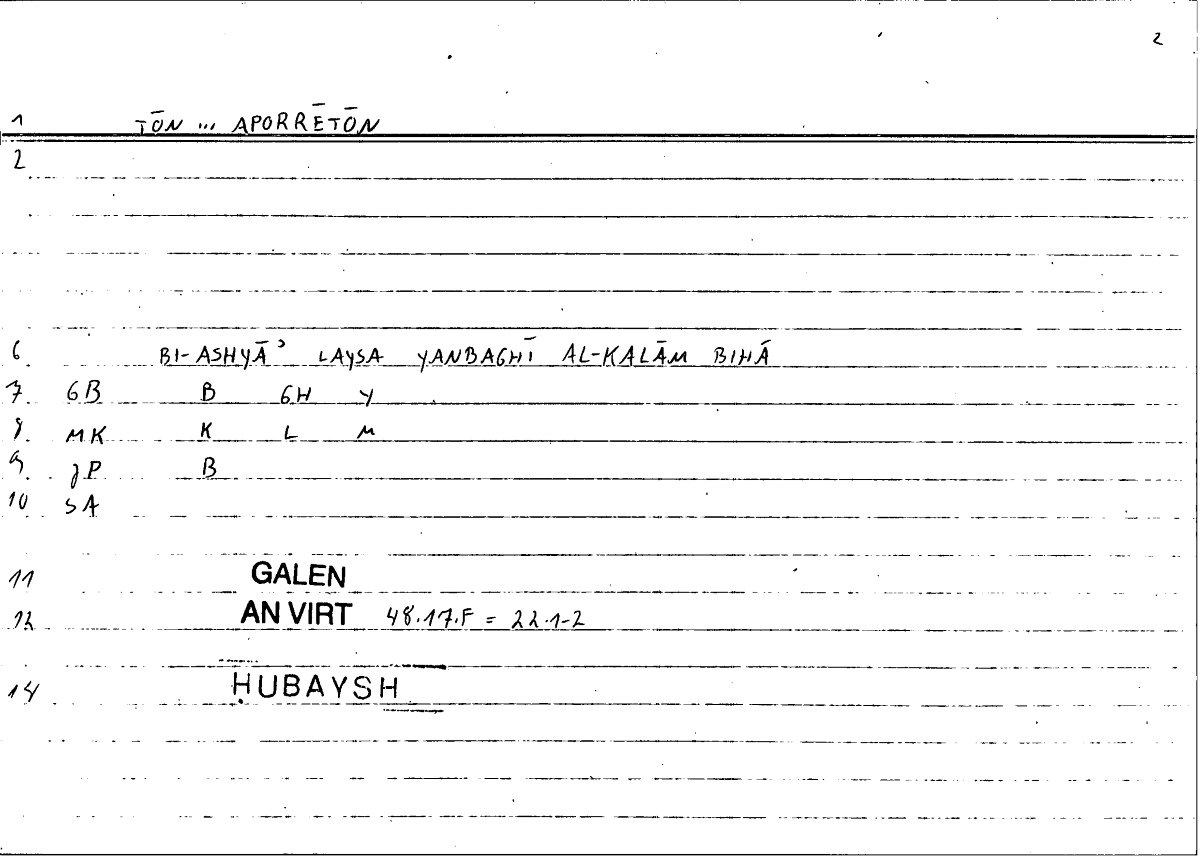 2
1 TŌN ... APORRĒTŌN
2
6 BI-ASHYĀʾ LAYSA YANBAGHĪ AL-KALĀM BIHĀ
7. GB B GH Y
8. MK K L M
9. JP B
10 SA
11 GALEN
12. AN VIRT 48.17.F = 22.1-2
14 ḤUBAYSH